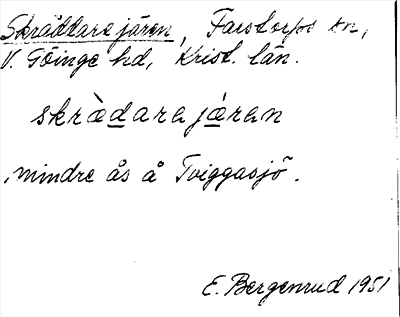 Skräddarejären, Farstorps sn,
V. Göinge hd, Krist. län.
skràdarejáran
mindre ås å Tviggasjö.
E. Bergenrud 1951